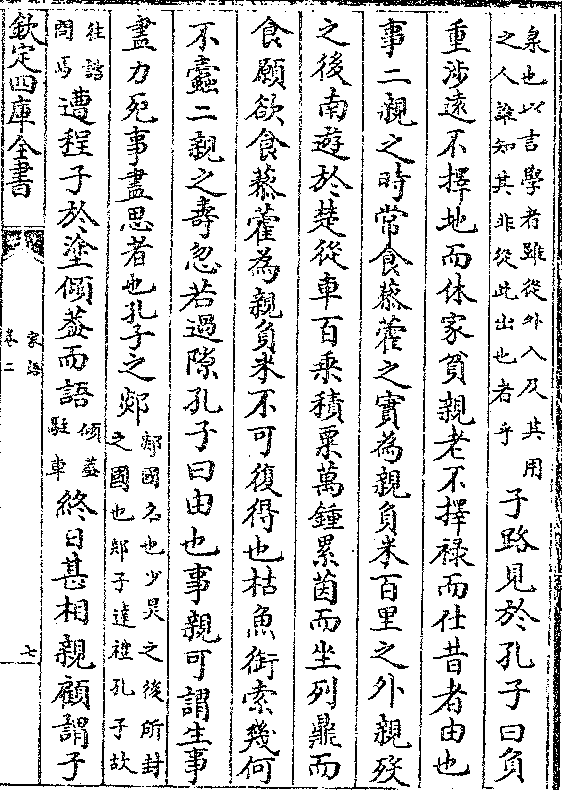 泉也以言學者雖從外入及其用
之人誰知其非從此出也者乎
子路見於孔子曰負
重涉遠不擇地而休家貧親老不擇祿而仕昔者由也
事二親之時常食藜藿之實為親負米百里之外親歿
之後南遊於楚從車百乘積粟萬鍾累茵而坐列鼎而
食願欲食藜藿為親負米不可復得也枯魚銜索幾何
不蠹二親之壽忽若過隙孔子曰由也事親可謂生事
盡力死事盡思者也孔子之郯
郯國名也少昊之後所封
之國也郯子達禮孔子故
往諮
問焉
遭程子於塗傾葢而語
傾葢
駐車
終日甚相親顧謂子
欽定四庫全書
家語
卷二
七